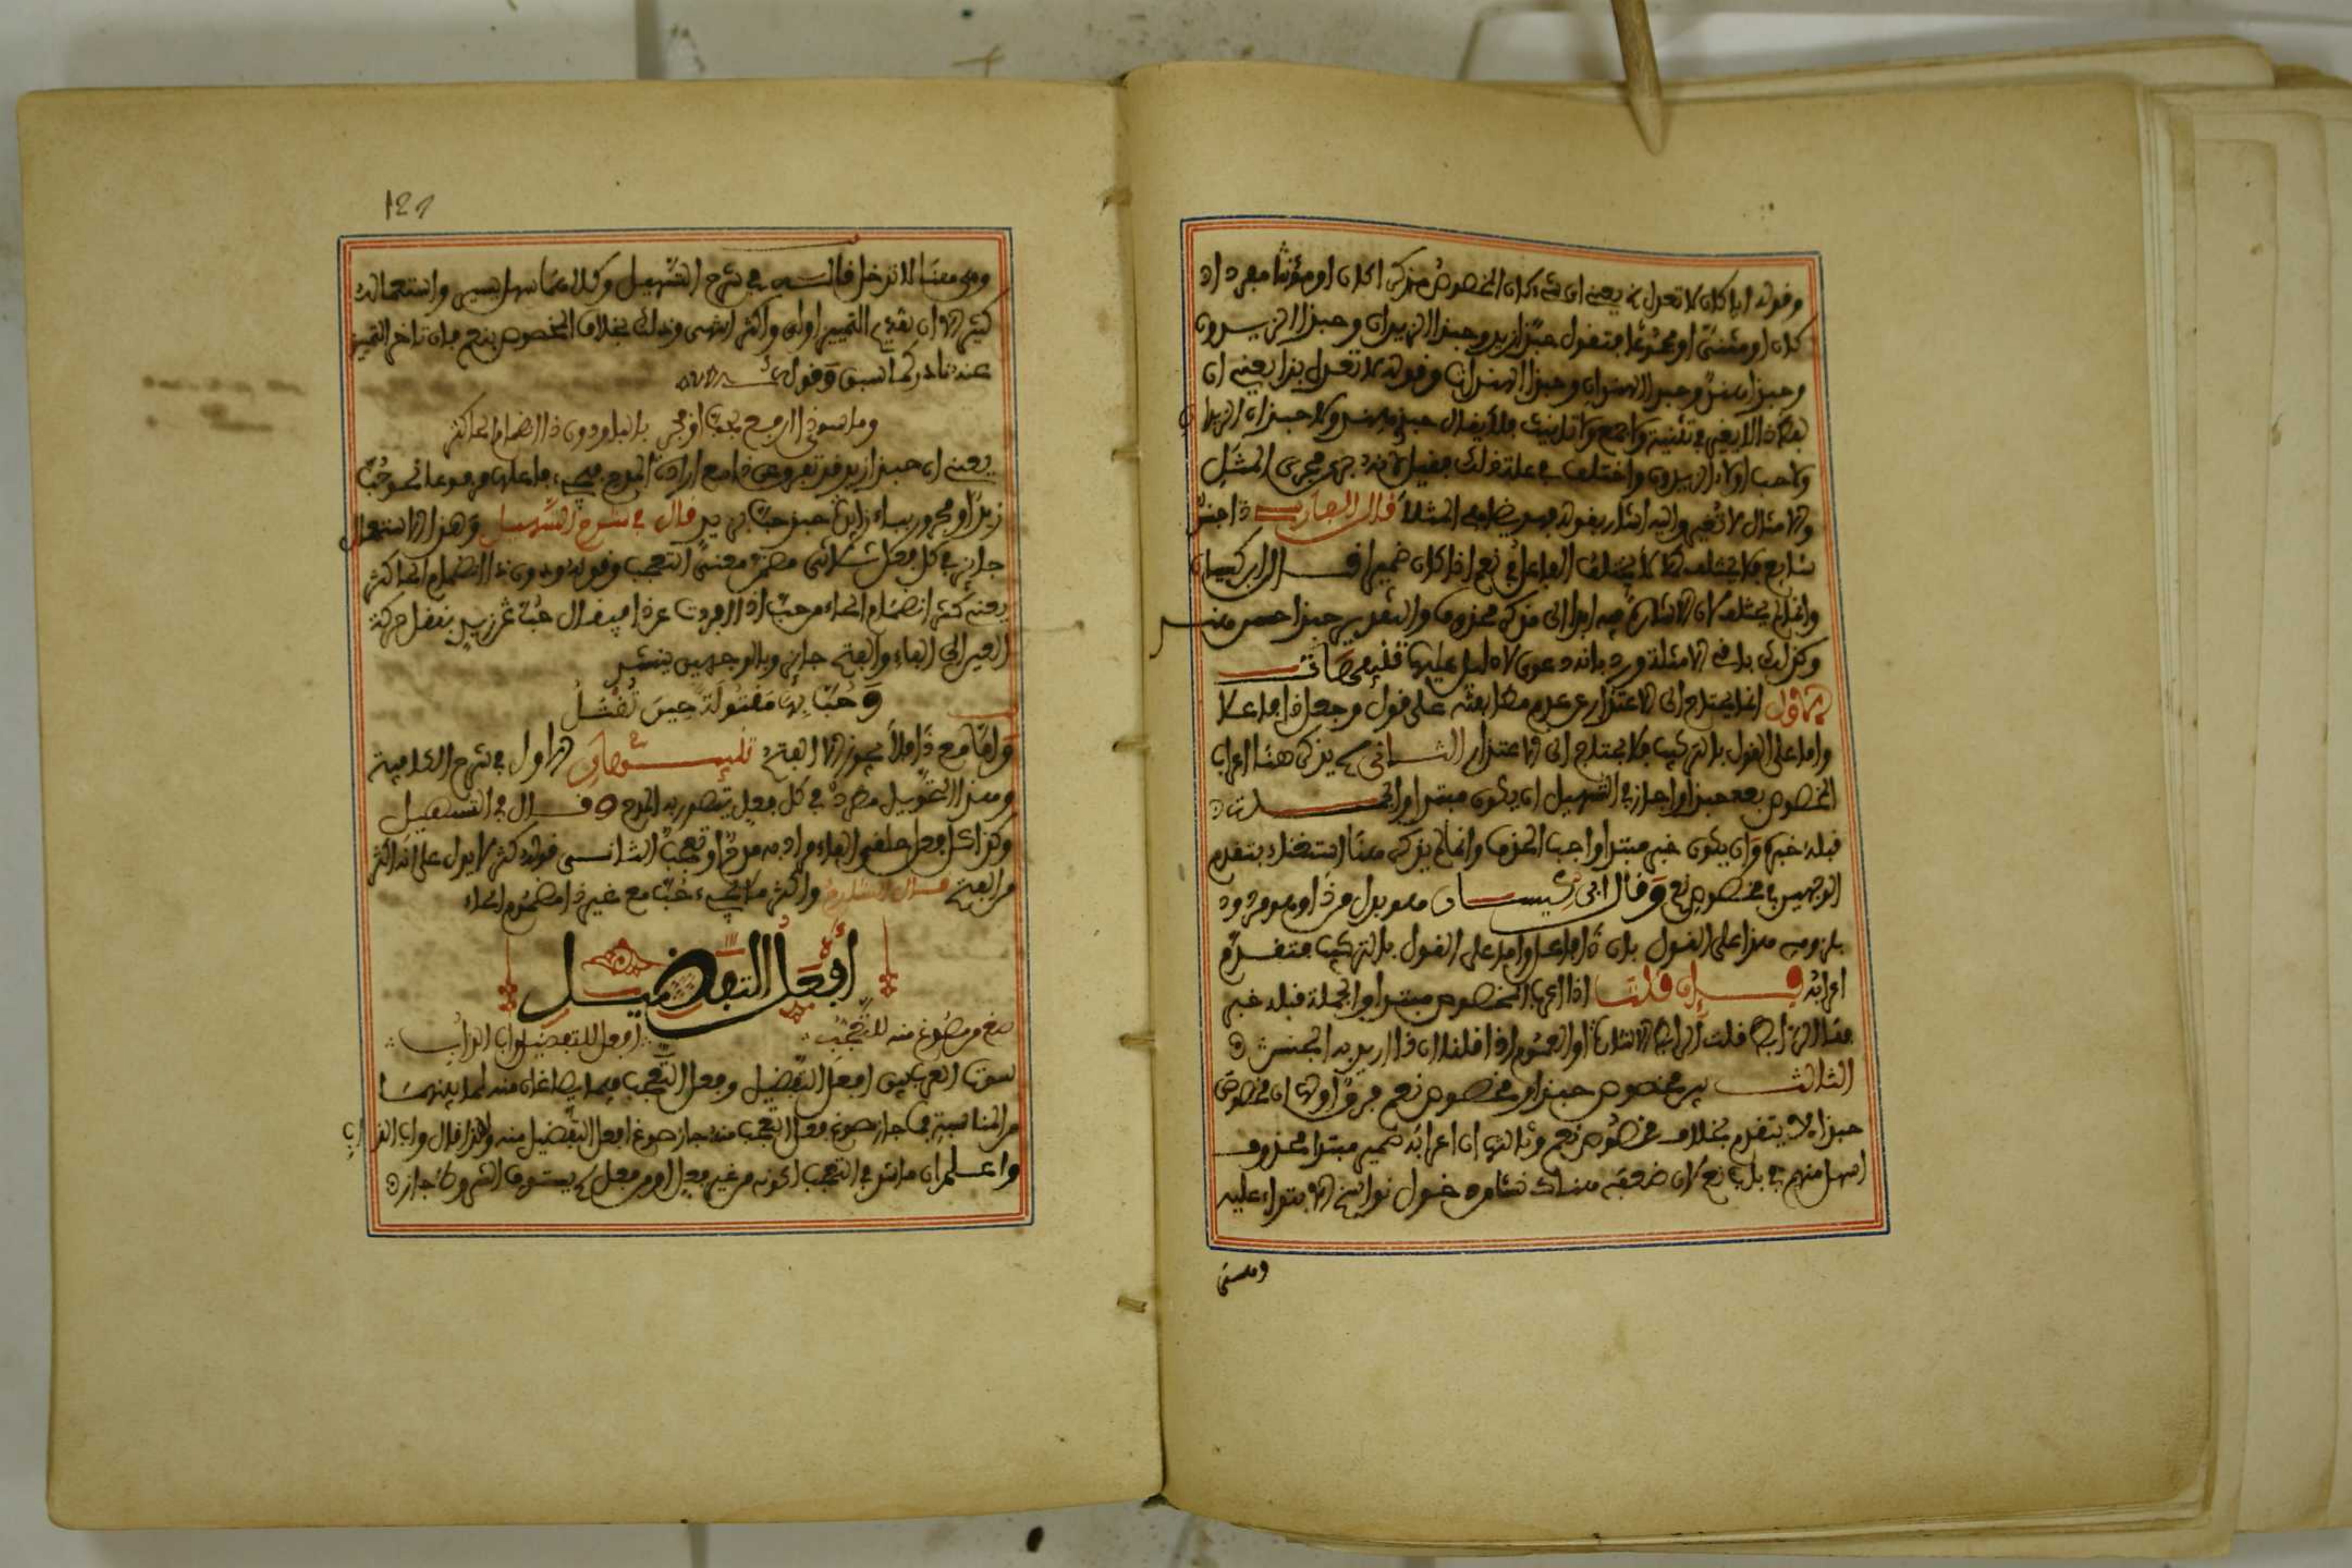 وقوله ايا كان لا تعدل بذا يعني اي شيء كان المخصوص مذكرا كان او مؤنثا مفردا
كان او مثنى او مجموعا فتقول حبذا زيد وحبذا الزيدان وحبذا الزيدون
وحبذا هند وحبذا الهندان وحبذا الهندات وقوله لا تعدل بذا يعني ان
هكذا لا يغير في تثنية ولا جمع ولا تانيث فلا يقال حب هند ولا حبذان الزيدان
ولا حب اولاء الزيدون واختلف في علة ذلك فقيل لانه جرى مجرى المثل
والامثال لا تغير واليه اشار بقوله فهو يضاهي المثلا قال الفارسي ذا جنس
شايع فلا يختلف كما لا يختلف الفاعل في نعم اذا كان ضميرا قال ابن كيسان
وانما لم يختلف لان الاشارة فيه ابدا الى مذكر محذوف والتقدير حبذا حسن هند
وكذلك باقي الامثلة ورد بانه دعوى لا دليل عليها تنبيهات
الاول انما يحتاج الى الاعتذار عن عدم مطابقته على قول من جعل ذا فاعلا
واما على القول بالتركيب فلا يحتاج الى الاعتذار الثاني لم يذكر هنا اعراب
المخصوص بعد حبذا واجاز في التسهيل ان يكون مبتدا والجملة
قبله خبره وان يكون خبر مبتدا واجب الحذف وانما لم يذكره هنا استغناء بتقدم
الوجهين في مخصوص نعم وقال ابن كيسان هو بدل من ذا وهو مردود
بلزومه هذا على القول بان ذا فاعل واما على القول بالتركيب فتقدم
اعرابه فان قلت اذا اعرب المخصوص مبتدا والجملة قبله خبر
فما الرابط قلت الرابط الاشارة او العموم اذا قلنا ان ذا اريد به الجنس
الثالث بين مخصوص حبذا ومخصوص نعم فرق اولها ان مخصوص
حبذا لا يتقدم بخلاف مخصوص نعم وثانيها ان اعرابه خبر مبتدا محذوف
اسهل منه في باب نعم لان ضعفه هناك نشا من دخول نواسخ الابتداء عليه
وهي
121
وهي هنا لا تدخل قاله في شرح التسهيل وكلاهما سهل يسير واستعماله
كثير الا ان تقديم التمييز اولى واكثر انتهى وذلك بخلاف المخصوص بنعم فان تاخر التمييز
عنه نادر كما سبق وقوله
وما سوى ذا ارفع بحب او فجر بالبا ودون ذا انضمام الحا كثر
يعني ان حب يفرد عن ذا مع ارادة المدح فيجيء فاعلها مرفوعا نحو حب
زيد او مجرورا بباء زايدة نحو حب بزيد قال في شرح التسهيل وهذا الاستعمال
جائز في كل فعل ثلاثي مضمن معنى التعجب وقوله ودون ذا انضمام الحا كثر
يعني كثر انضمام الحاء من حب اذا افردت عن ذا فيقال حب عمرو بنقل حركة
العين الى الفاء والفتح جائز وبالوجهين ينشد
وَحُبَّ بِهَا مَقْتُولَةً حِينَ تُقْتَلُ
واما مع ذا فلا يجوز الا الفتح تنبيهان الاول في شرح الكافية
وهذا التحويل مطرد في كل فعل مقصود به المدح وقال في التسهيل
وكذا كل فعل حلقي الفاء مراد به مدح او تعجب الثاني قوله كثر لا يدل على انه اكثر
من الفتح قال الشارح واكثر ما تجيء حب مع غير ذا مضموم الحاء
أفعل التفضيل
صغ من مصوغ منه للتعجب افعل للتفضيل واب اللذ ابي
سوت العرب بين افعل التفضيل وفعل التعجب فيما يصاغان منه لما بينهما
من المناسبة فما جاز صوغ فعل التعجب منه جاز صوغ افعل التفضيل منه ولهذا قال واب اللذ ابي
واعلم ان ما شذ في التعجب لكونه من غير فعل او من فعل لم يستوف الشروط جاز